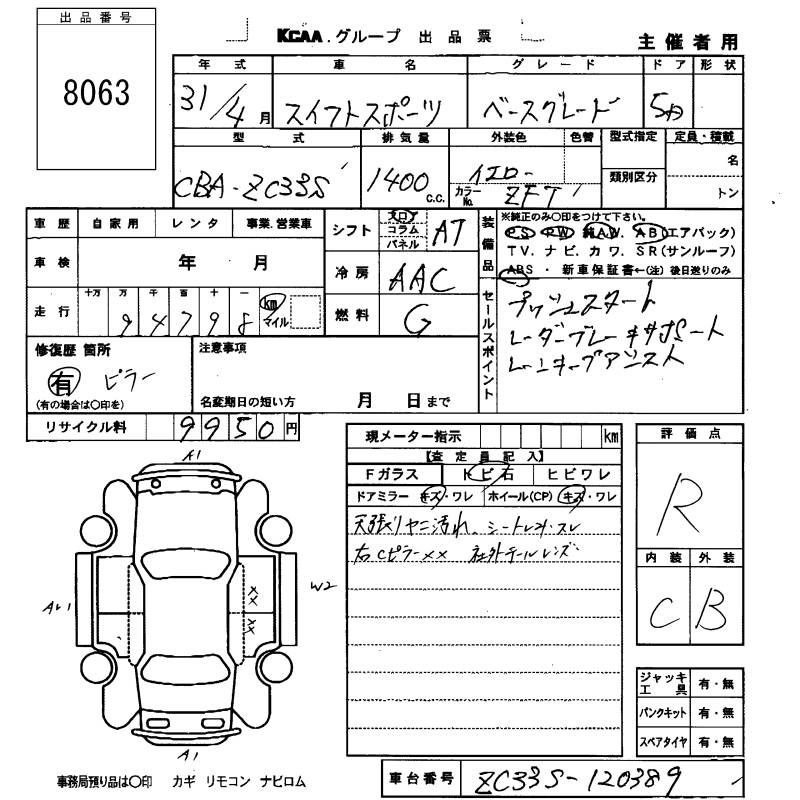 出品番号
8063
KCAA.グループ 出品票
主催者用
年式 車名 グレード ドア 形状
31/4月 スイフトスポーツ ベースグレード 5D
型式 排気量 外装色 色替 型式指定 定員・積載
類別区分
CBA-ZC33S 1400 C.C. イエロー
カラーNo. ZFT
名
トン
車歴 自家用 レンタ 事業.営業車
車検 年 月
走行 十万 万 千 百 十 一
9 4 7 9 8 km マイル
シフト フロア コラム パネル AT
冷房 AAC
燃料 G
装備品
※純正のみ〇印をつけて下さい。
PS PW 純AW. AB(エアバック)
TV. ナビ. カワ. SR(サンルーフ)
ABS ・ 新車保証書←(注) 後日送りのみ
セールスポイント
プッシュスタート
レーダーブレーキサポート
レーンキープアシスト
修復歴 箇所
有 ピラー
(有の場合は〇印を)
注意事項
名変期日の短い方 月 日まで
リサイクル料 9950円
現メーター指示 km
【査定員記入】
Fガラス トビ石 ヒビワレ
ドアミラー キズ・ワレ ホイール(CP) キズ・ワレ
天張りヤニ汚れ、シートレカ・スレ
右Cピラー×× 社外テールレンズ
評価点
R
内装 外装
C B
ジャッキ工具 有・無
パンクキット 有・無
スペアタイヤ 有・無
A1
××
××
W2
A1
事務局預り品は〇印 カギ リモコン ナビロム
車台番号 ZC33S-120389